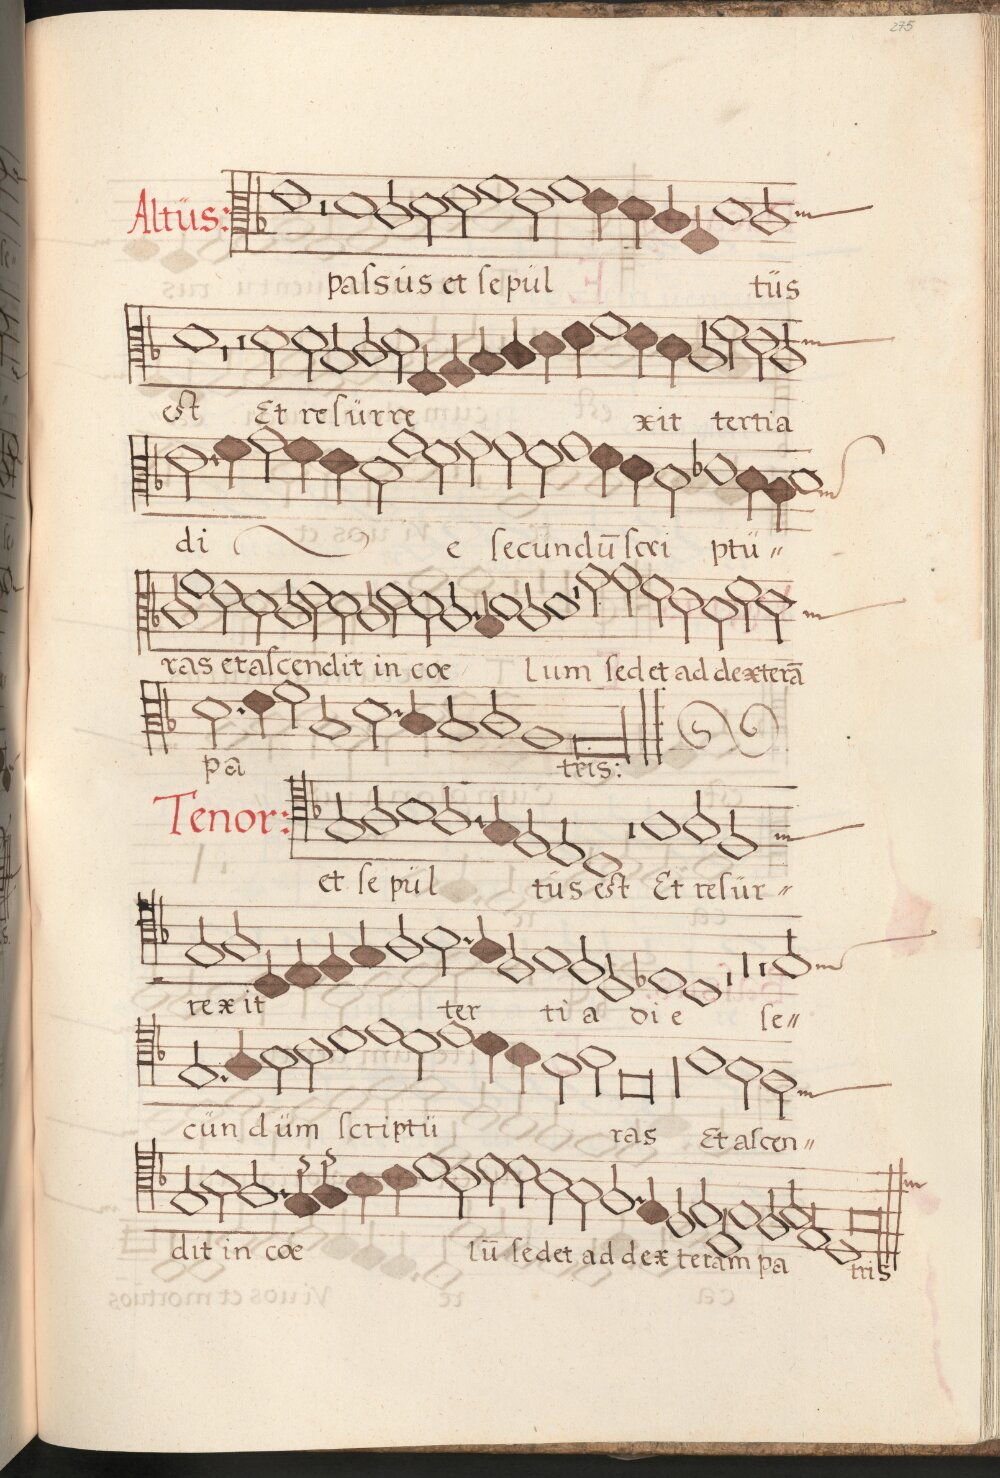 275
Altüs:
paſsüs et ſepül tüs
eſt Et reſürre xit tertia
di e ſecundū ſcri ptü〃
ras et aſcendit in coe Lum ſedet ad dexterā
pā tris:
Tenor:
et ſe pül tüs eſt Et reſür〃
rexit ter ti a die ſe〃
cün düm ſcriptü ras Et aſcen〃
dit in coe lū ſedet ad dex teram pa tris